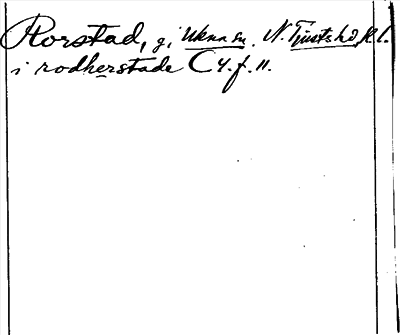 Rorstad, g. i Ukna sn. N. Tjusts hd, K l.
i rodherstade C 4. f. 11.